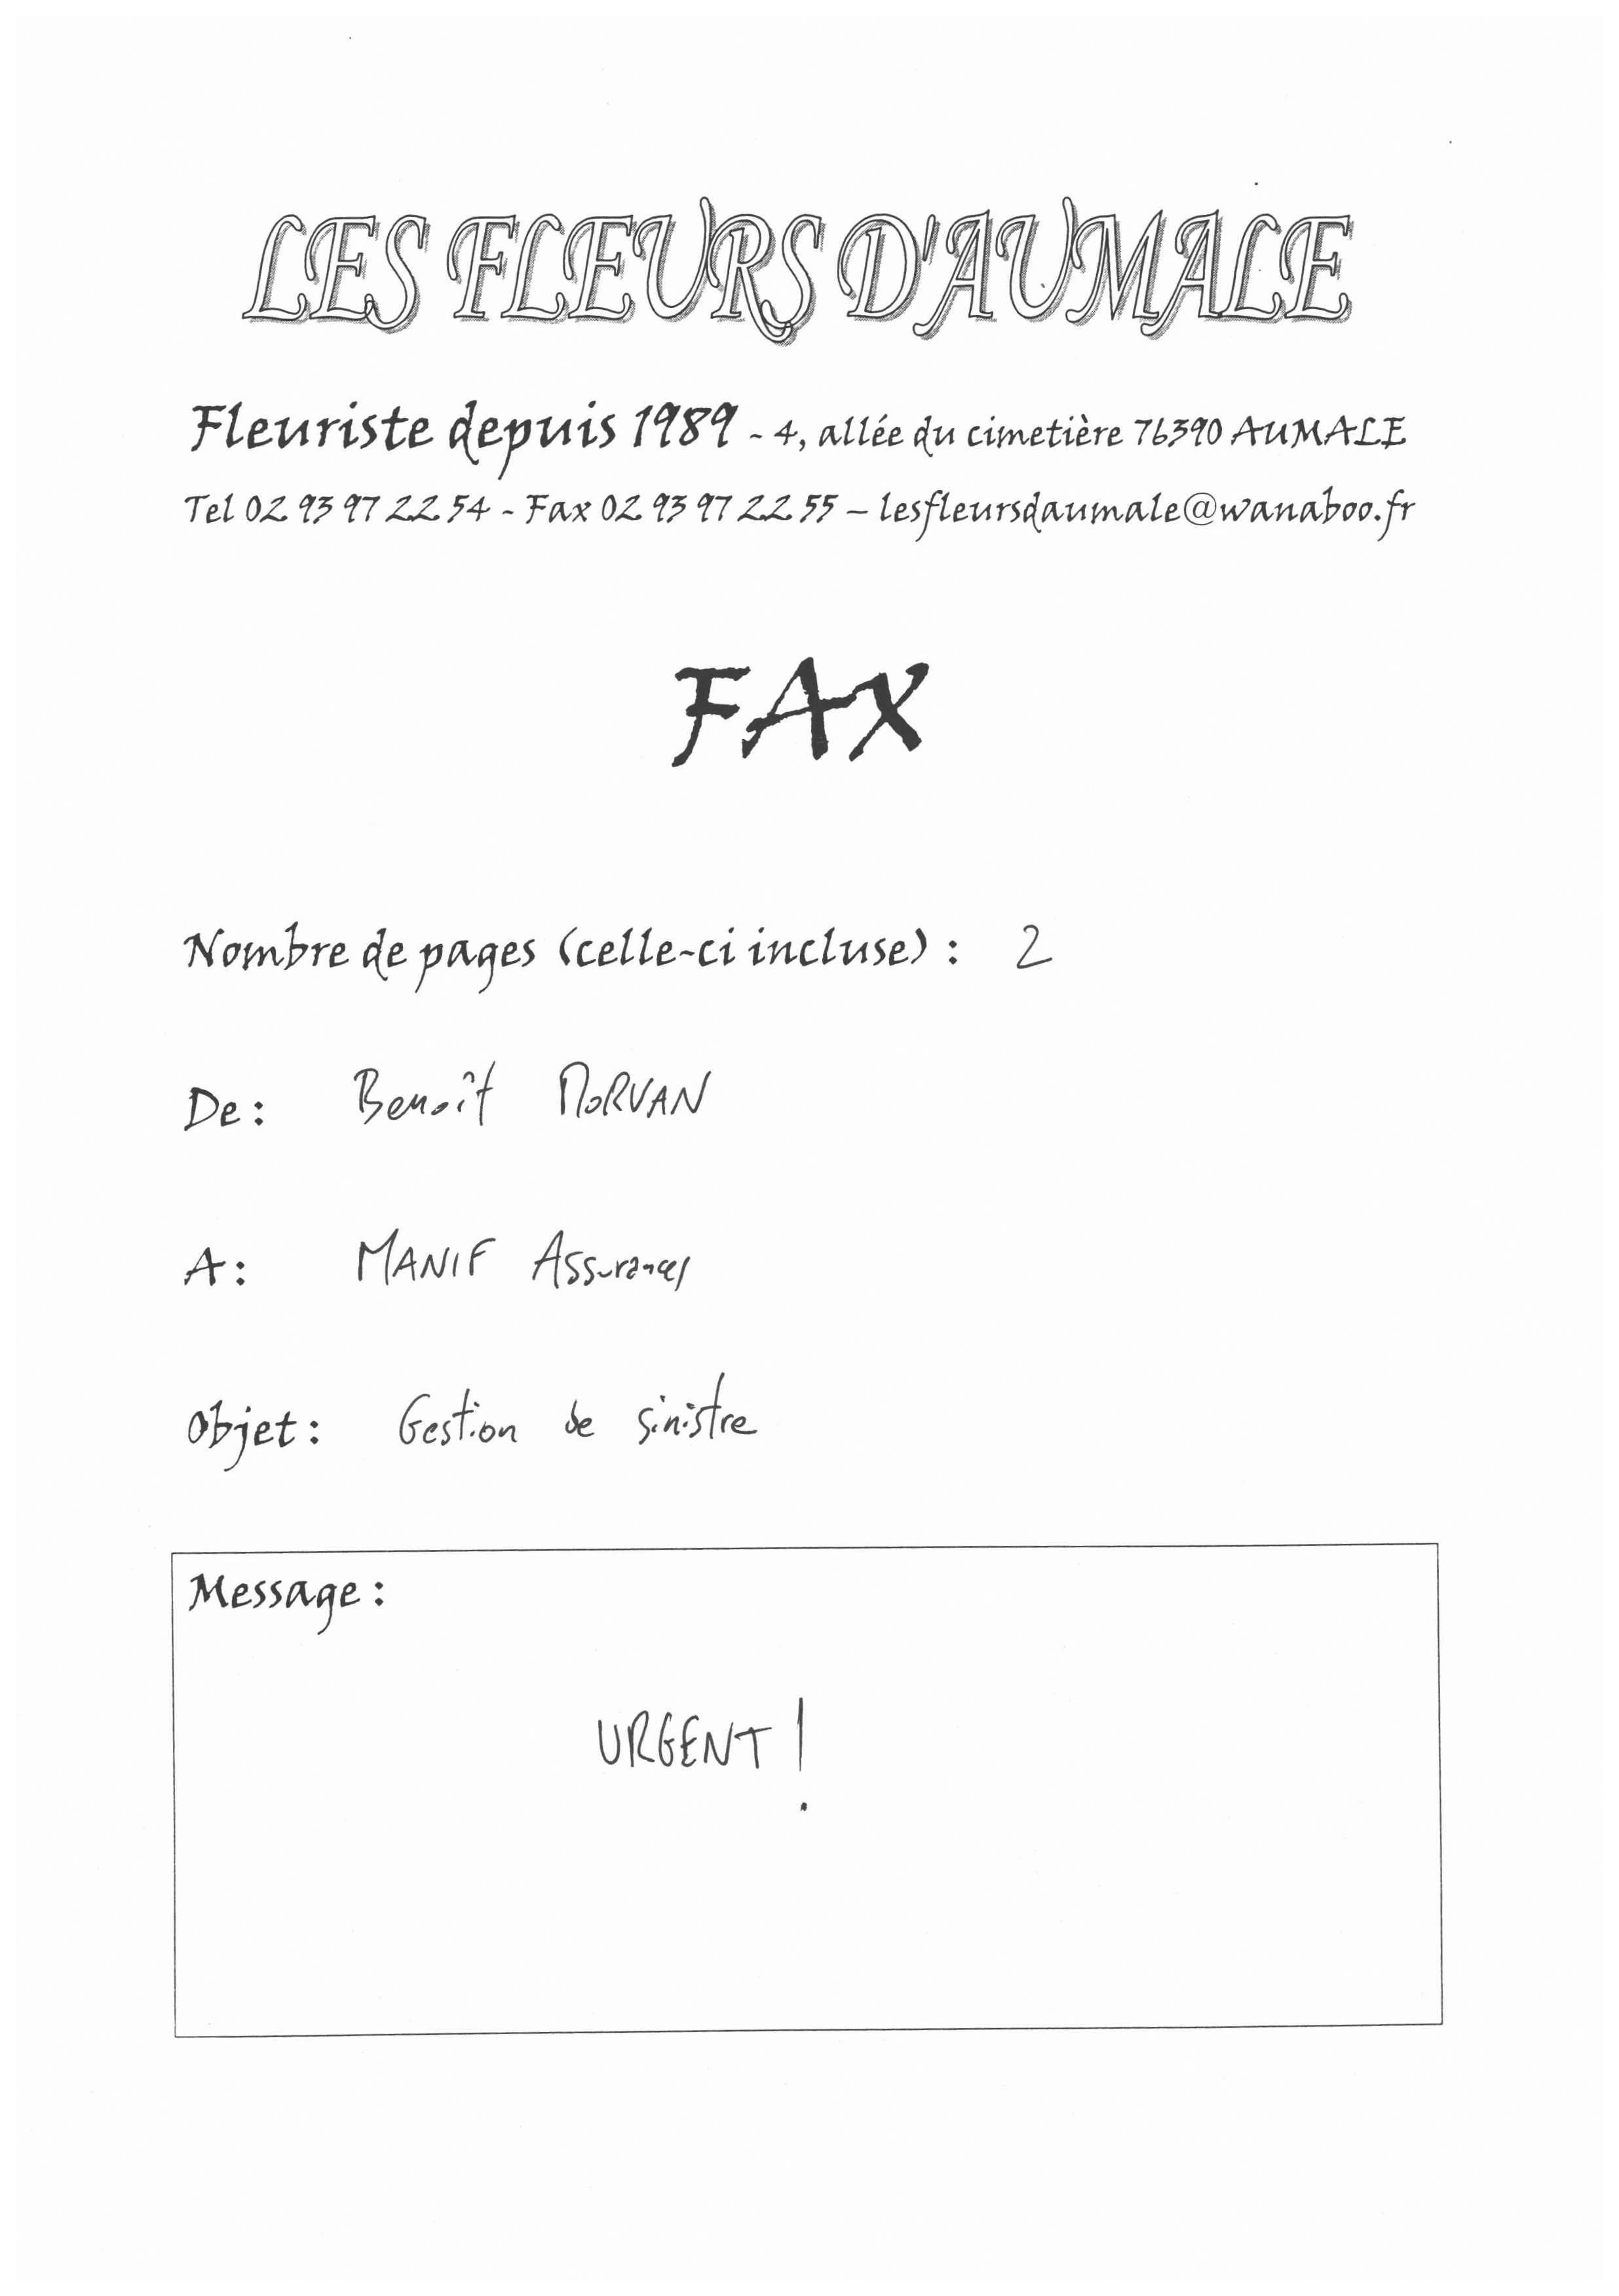 LES FLEURS D'AUMALE
Fleuriste depuis 1989 - 4, allée du cimetière 76390 AUMALE
Tel 02 93 97 22 54 - Fax 02 93 97 22 55 – lesfleursdaumale@wanaboo.fr
FAX
Nombre de pages (celle-ci incluse) : 2
De : Benoît MORVAN
A : MANIF Assurances
Objet : Gestion de sinistre
Message :
URGENT !